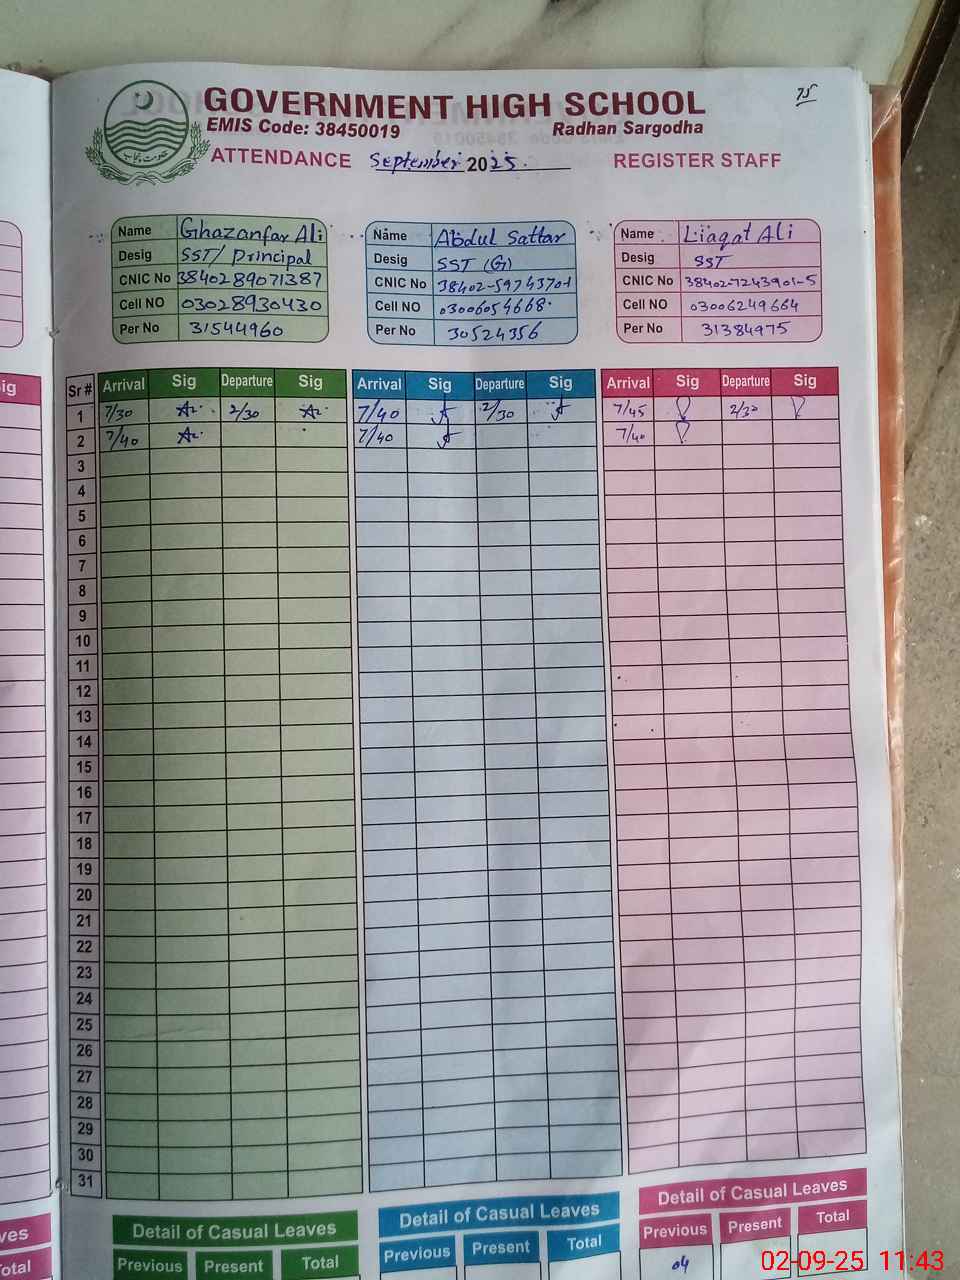 75
GOVERNMENT HIGH SCHOOL
EMIS Code: 38450019 Radhan Sargodha
ATTENDANCE September 2025. REGISTER STAFF
Name Ghazanfar Ali
Desig SST/ Principal
CNIC No 3840289071387
Cell NO 03028930430
Per No 31544960
Name Abdul Sattar
Desig SST (G)
CNIC No 38402-5974370-1
Cell NO 03006054668
Per No 30524356
Name Liaqat Ali
Desig SST
CNIC No 38402-7243901-5
Cell NO 03006249664
Per No 31384975
Sr # Arrival Sig Departure Sig Arrival Sig Departure Sig Arrival Sig Departure Sig
1 7/30 2/30 7/40 2/30 7/45 2/30
2 7/40 7/40 7/40
3
4
5
6
7
8
9
10
11
12
13
14
15
16
17
18
19
20
21
22
23
24
25
26
27
28
29
30
31
Detail of Casual Leaves Detail of Casual Leaves Detail of Casual Leaves
Previous Present Total Previous Present Total Previous Present Total
04
ig
ves
otal
02-09-25 11:43